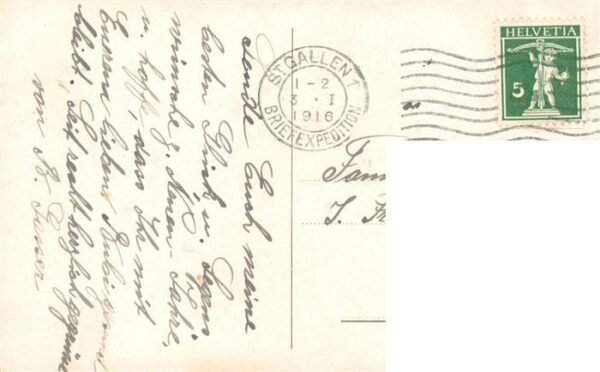 sende Euch meine
besten Glück u. Segens
wünsche z. Neuen Jahre,
u. hoffe, dass Ihr mit
Eurem lieben Bubi gesund
bleibt. Seid recht herzlich gegrüsst
von B.
ST. GALLEN 1
1-2
3. I
1916
BRIEFEXPEDITION
HELVETIA
5
Fam